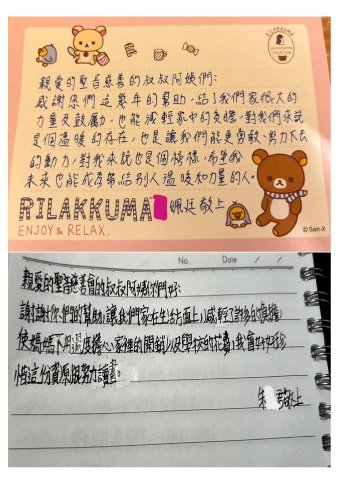 RILAKKUMA
親愛的聖音慈善的叔叔阿姨們:
感謝您們這幾年的幫助,給了我們家很大的
力量及鼓勵,也能減輕家中的負擔,對我們來說
是個溫暖的存在,也是讓我們能更勇敢、努力下去
的動力,對我來說也是個榜樣,希望我
未來也能成為帶給別人溫暖和力量的人。
RILAKKUMA 姵廷敬上
ENJOY & RELAX.
© San-X
No. Date
親愛的聖音慈善會的叔叔阿姨你們好:
謝謝你們的幫助,讓我們家在生活方面上減輕了許多的負擔,
使媽媽不用過度擔心家裡的開銷以及學校的花費,我會好好珍
惜這份資源努力讀書。
朱 君敬上